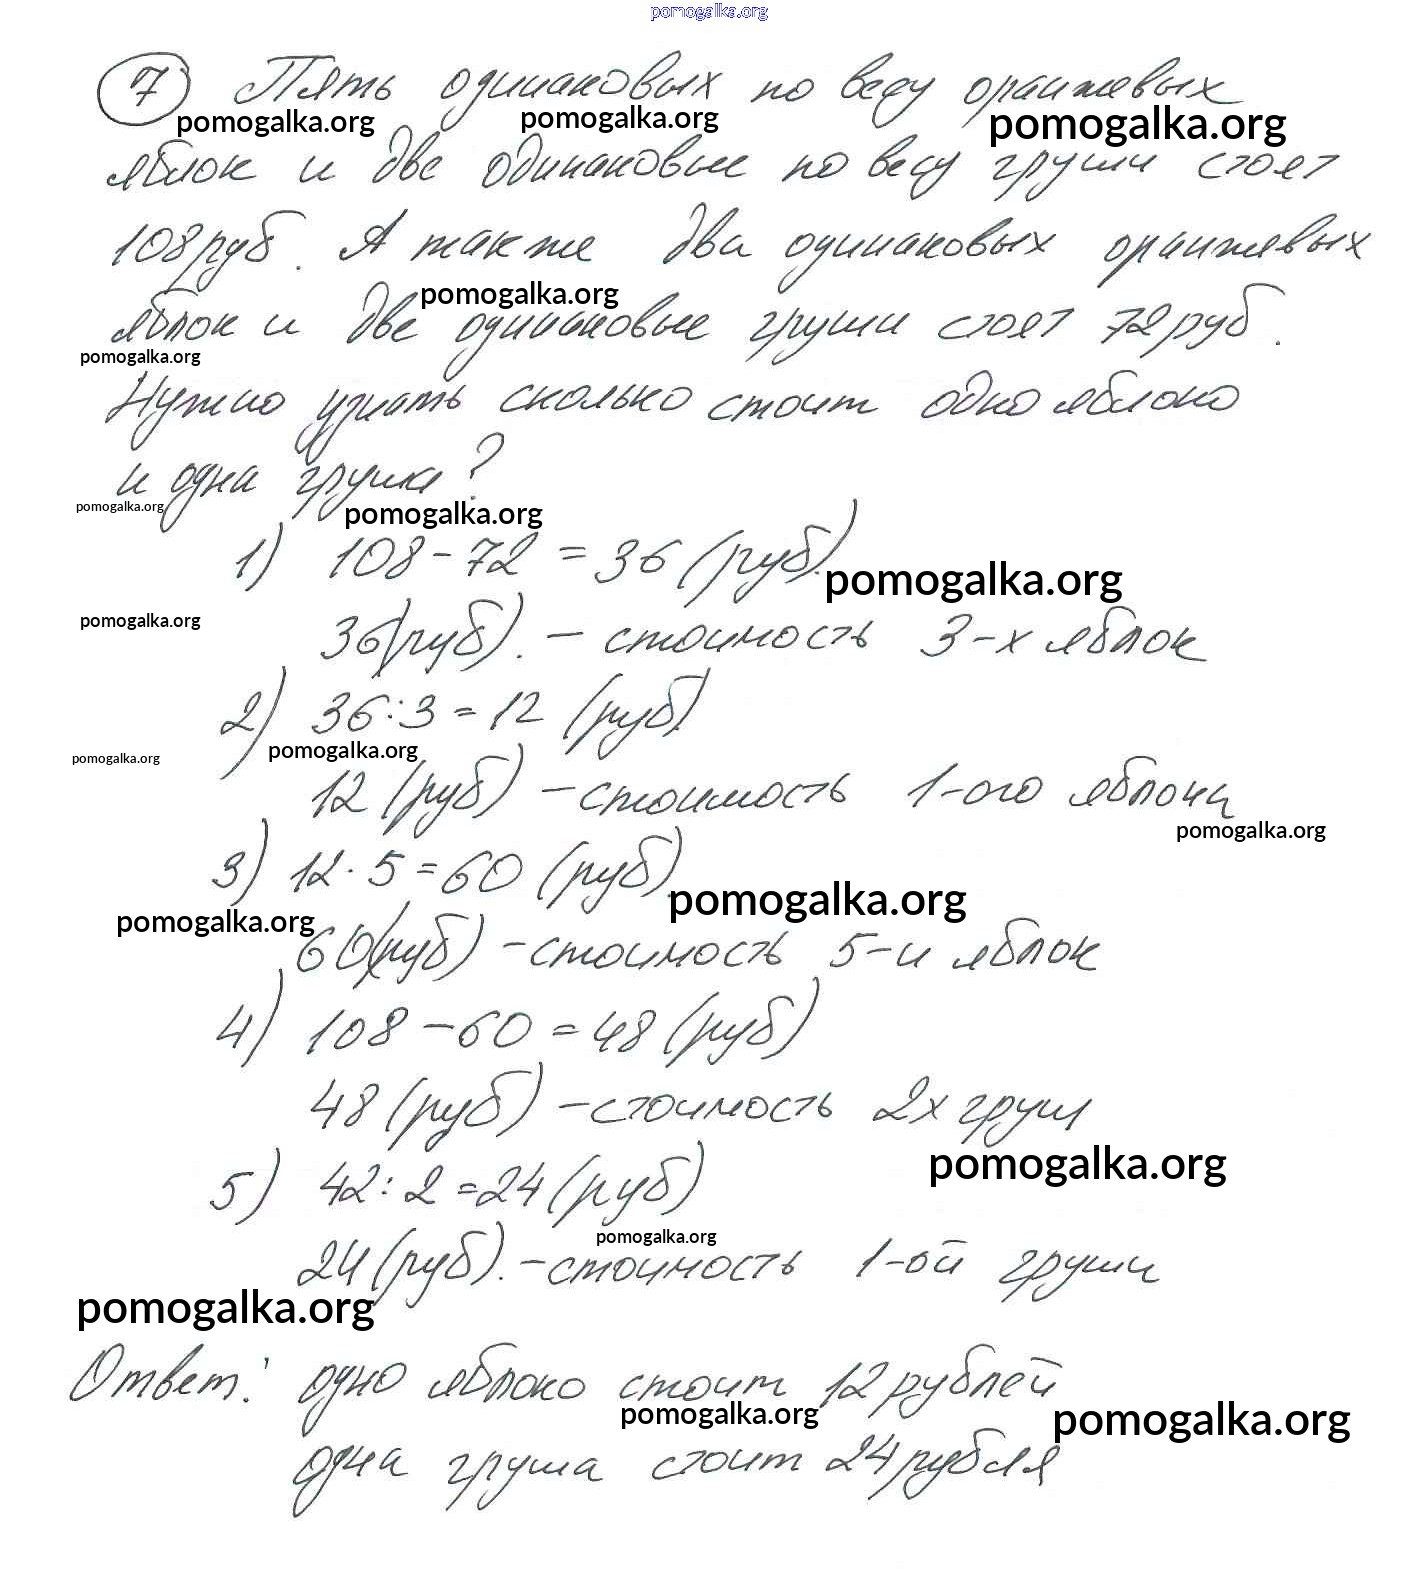 pomogalka.org
7 Пять одинаковых по весу оранжевых
pomogalka.org pomogalka.org pomogalka.org
яблок и две одинаковые по весу груши стоят
108 руб. А также два одинаковых оранжевых
pomogalka.org
яблок и две одинаковые груши стоят 72 руб.
pomogalka.org
Нужно узнать сколько стоит одно яблоко
и одна груша?
pomogalka.org pomogalka.org
1) 108 - 72 = 36 (руб).
pomogalka.org
pomogalka.org
36(руб). – стоимость 3-х яблок
2) 36:3 = 12 (руб)
pomogalka.org pomogalka.org
12 (руб) – стоимость 1-ого яблока
pomogalka.org
3) 12 · 5 = 60 (руб)
pomogalka.org
pomogalka.org
60(руб) – стоимость 5-и яблок
4) 108 – 60 = 48 (руб)
48 (руб) – стоимость 2х груш
pomogalka.org
5) 42 : 2 = 24 (руб)
pomogalka.org
24 (руб). – стоимость 1-ой груши
pomogalka.org
Ответ: одно яблоко стоит 12 рублей
pomogalka.org pomogalka.org
одна груша стоит 24 рубля